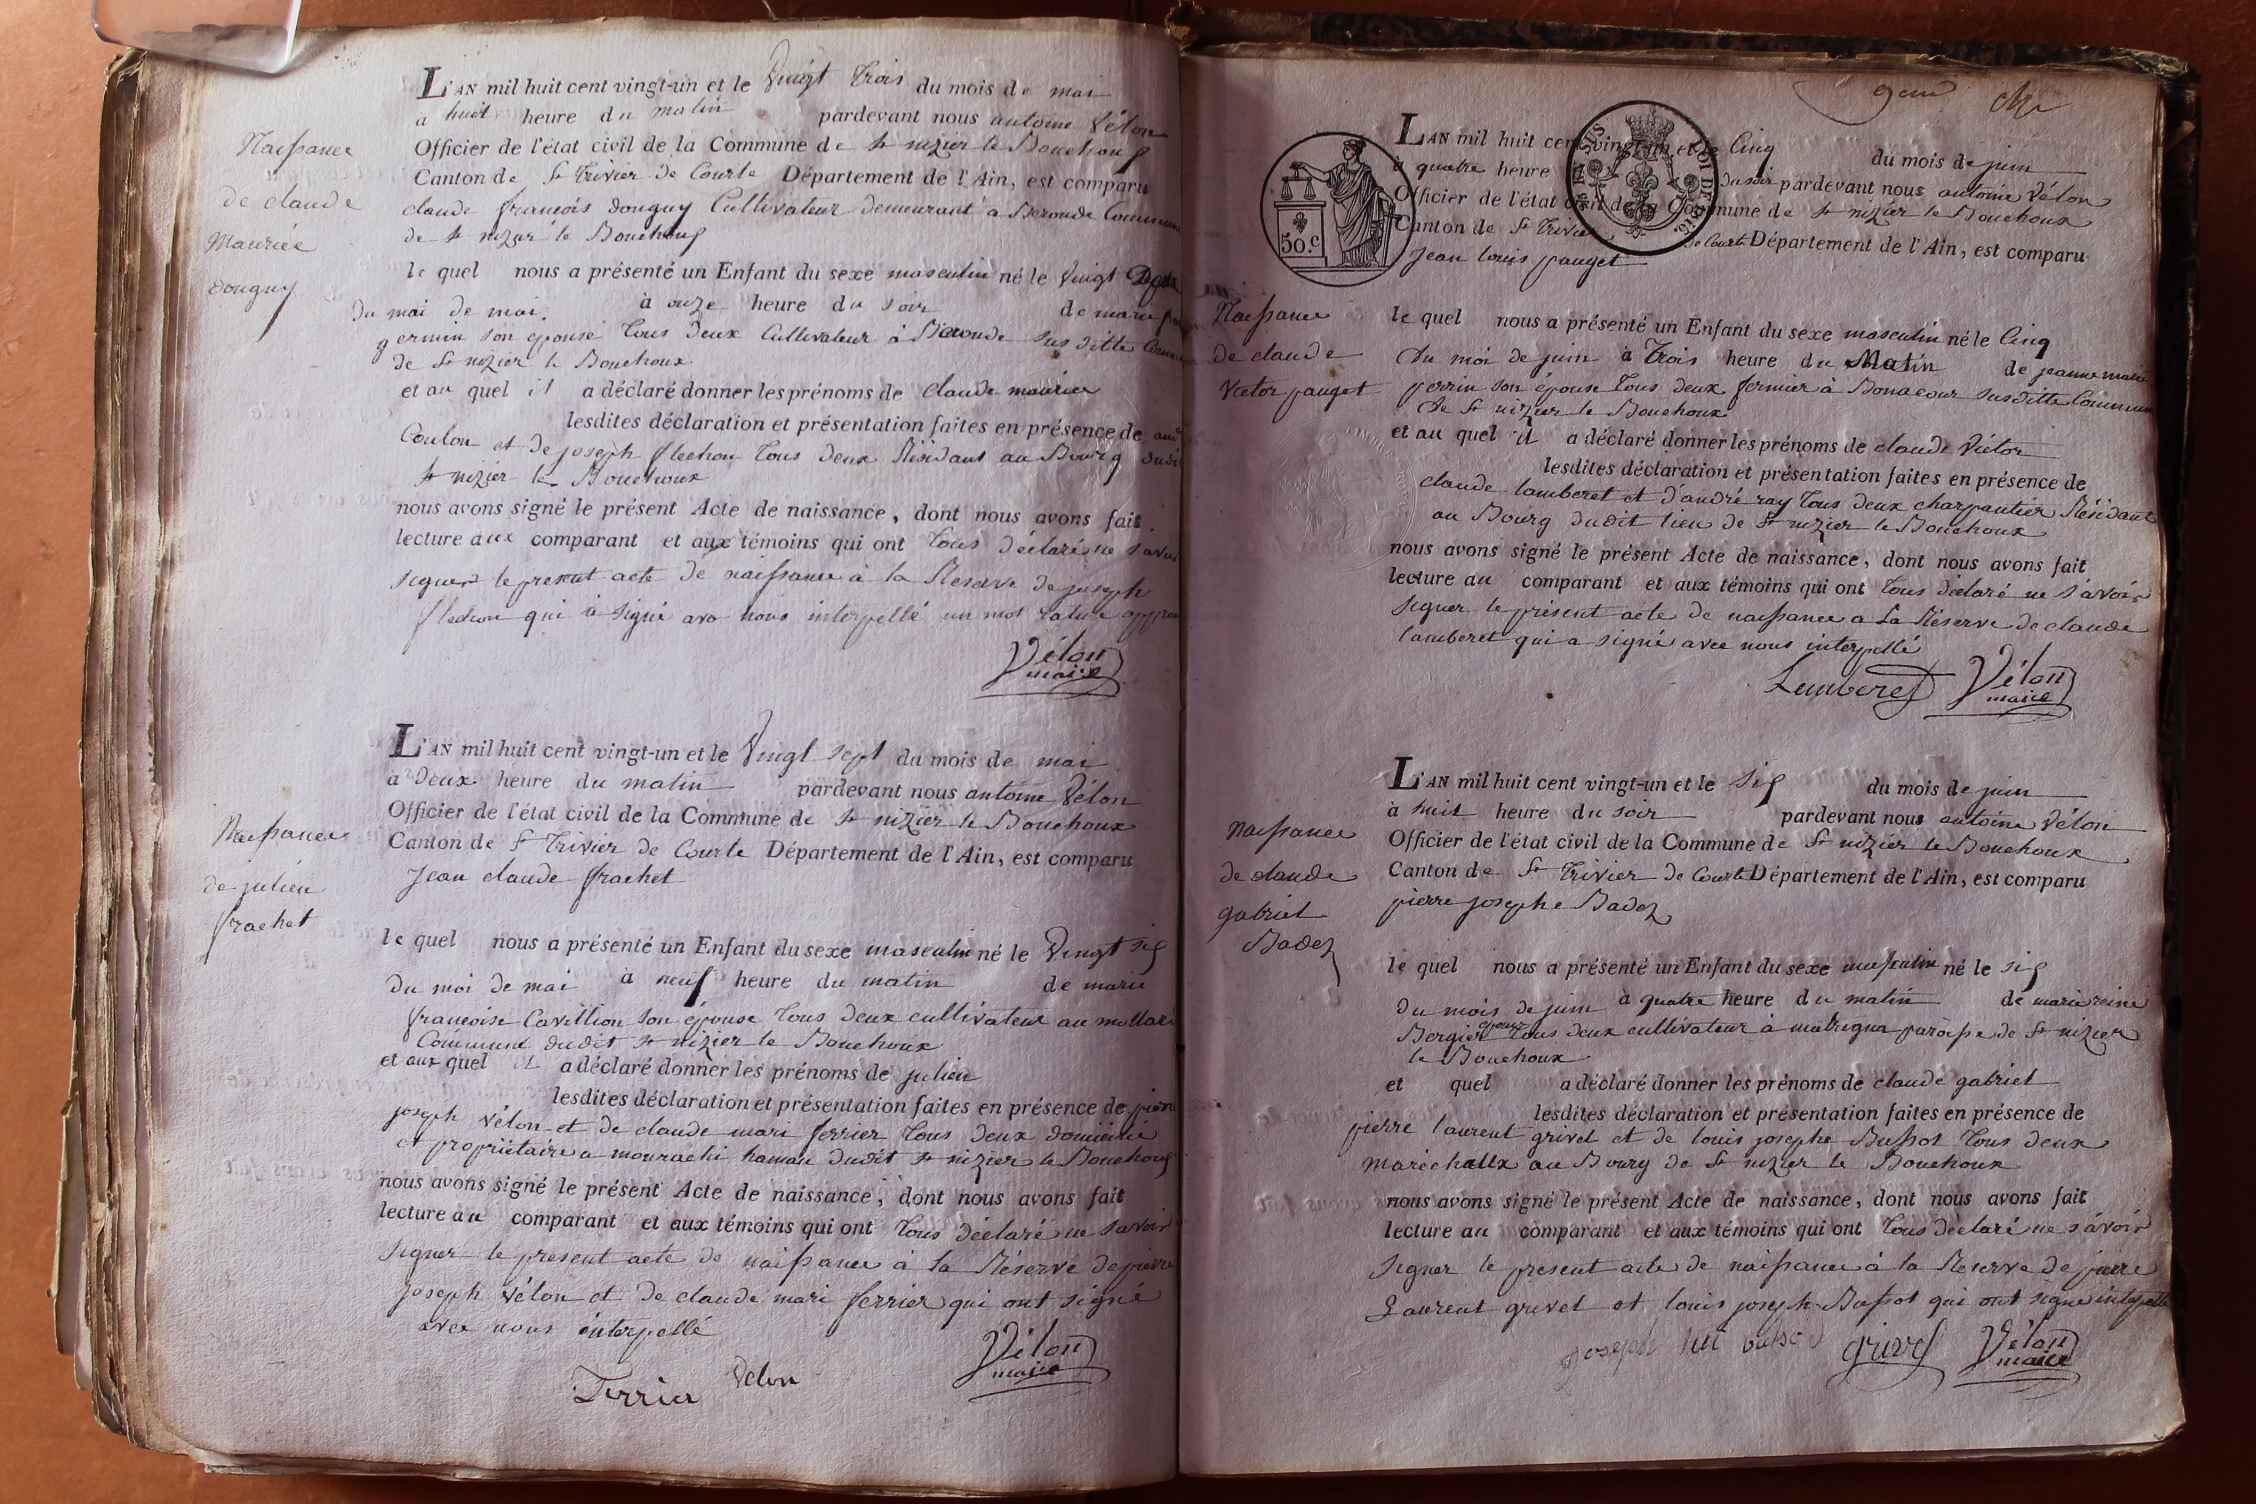 Naissance
de claude
Maurice
douguy
L'AN mil huit cent vingt-un et le Vingt Trois du mois de mai
a huit heure du matin pardevant nous antoine Vélon
Officier de l'état civil de la Commune de St nizier le Bouchoux
Canton de St Trivier de Courte Département de l'Ain, est comparu
claude françois douguy Cultivateur demeurant a Beronde Commune
de St nizier le Bouchoux
le quel nous a présenté un Enfant du sexe masculin né le Vingt
du moi de mai. à onze heure du soir de marie
germin son epouse Tous deux Cultivateur à Beronde sus ditte
de St nizier le Bouchoux
et au quel il a déclaré donner les prénoms de Claude maurice
lesdites déclaration et présentation faites en présence de
Coulon et de joseph flechon Tous deux Résidant au Bourg dudit
St nizier le Bouchoux
nous avons signé le présent Acte de naissance, dont nous avons fait
lecture aux comparant et aux témoins qui ont Tous déclaré ne savoir
signer le present acte de naissance à la Reserve de joseph
flechon qui à signé avec nous interpellé un mot rature
Vélon
maire
Naissance
de julien
frachet
L'AN mil huit cent vingt-un et le Vingt sept du mois de mai
à Deux heure du matin pardevant nous antoine Vélon
Officier de l'état civil de la Commune de St nizier le Bouchoux
Canton de St Trivier de Courte Département de l'Ain, est comparu
Jean claude frachet
le quel nous a présenté un Enfant du sexe masculin né le Vingt six
du moi de mai à neuf heure du matin de marie
françoise Cavillion son épouse Tous deux cultivateur au
Commune dudit St nizier le Bouchoux
et aux quel il a déclaré donner les prénoms de julien
lesdites déclaration et présentation faites en présence de pierre
joseph Vélon et de claude mari ferrier Tous deux domicilié
et propriétaire a mourachi hamau dudit St nizier le Bouchoux
nous avons signé le présent Acte de naissance, dont nous avons fait
lecture au comparant et aux témoins qui ont Tous déclaré ne savoir
signer le present acte de naissance à la Réserve de pierre
joseph Vélon et de claude mari ferrier qui ont signé
avec nous interpellé
Vélon
maire
Ferrier Vélon
50.c
Naissance
de claude
Victor pauget
L'AN mil huit cent vingt-un et le Cinq du mois de juin
à quatre heure du soir pardevant nous antoine Vélon
Officier de l'état civil de la Commune de St nizier le Bouchoux
Canton de St Trivier de Courte Département de l'Ain, est comparu
Jean louis pauget
le quel nous a présenté un Enfant du sexe masculin né le Cinq
du moi de juin à Trois heure du Matin de jeanne marie
perrin son épouse Tous deux fermier à Bonacour susditte Commune
de St nizier le Bouchoux
et au quel il a déclaré donner les prénoms de claude Victor
lesdites déclaration et présentation faites en présence de
claude lamberet et d'andré ray Tous deux charpantier Résidant
au Bourg dudit lieu de St nizier le Bouchoux
nous avons signé le présent Acte de naissance, dont nous avons fait
lecture au comparant et aux témoins qui ont Tous déclaré ne savoir
signer le présent acte de naissance a la Réserve de claude
lamberet qui a signé avec nous interpellé
Lamberet Vélon
maire
Naissance
de claude
gabriel
Badez
L'AN mil huit cent vingt-un et le six du mois de juin
à huit heure du soir pardevant nous antoine Vélon
Officier de l'état civil de la Commune de St nizier le Bouchoux
Canton de St Trivier de Courte Département de l'Ain, est comparu
pierre josephe Badez
le quel nous a présenté un Enfant du sexe masculin né le six
du mois de juin à quatre heure du matin de marie reine
Bergier épouse Tous deux cultivateur à matrignat paroisse de St nizier
le Bouchoux
et quel a déclaré donner les prénoms de claude gabriel
lesdites déclaration et présentation faites en présence de
pierre laurent grivel et de louis josephe Bussot Tous deux
maréchaux au Bourg de St nizier le Bouchoux
nous avons signé le présent Acte de naissance, dont nous avons fait
lecture au comparant et aux témoins qui ont Tous déclaré ne savoir
signer le present acte de naissance à la Reserve de pierre
Laurent grivel et louis joseph Bussot qui ont signé interpellé
joseph grivel Vélon
maire